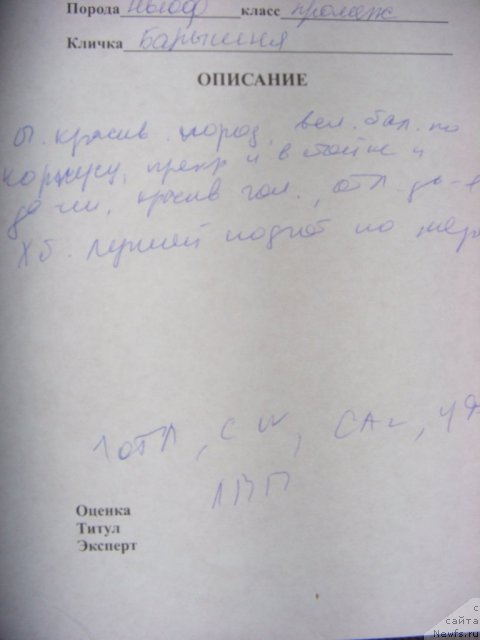 Порода Ньюф класс промеж
Кличка Барышня
ОПИСАНИЕ
О. красив. пород, вел. бал. по
корпусу, прекр и в стойке и
дв-ии, красив гол., отл. дв-е
Хб.
1 отл, CW, CAC, ЧФ
ЛПП
Оценка
Титул
Эксперт
с
сайта
Newfs.ru